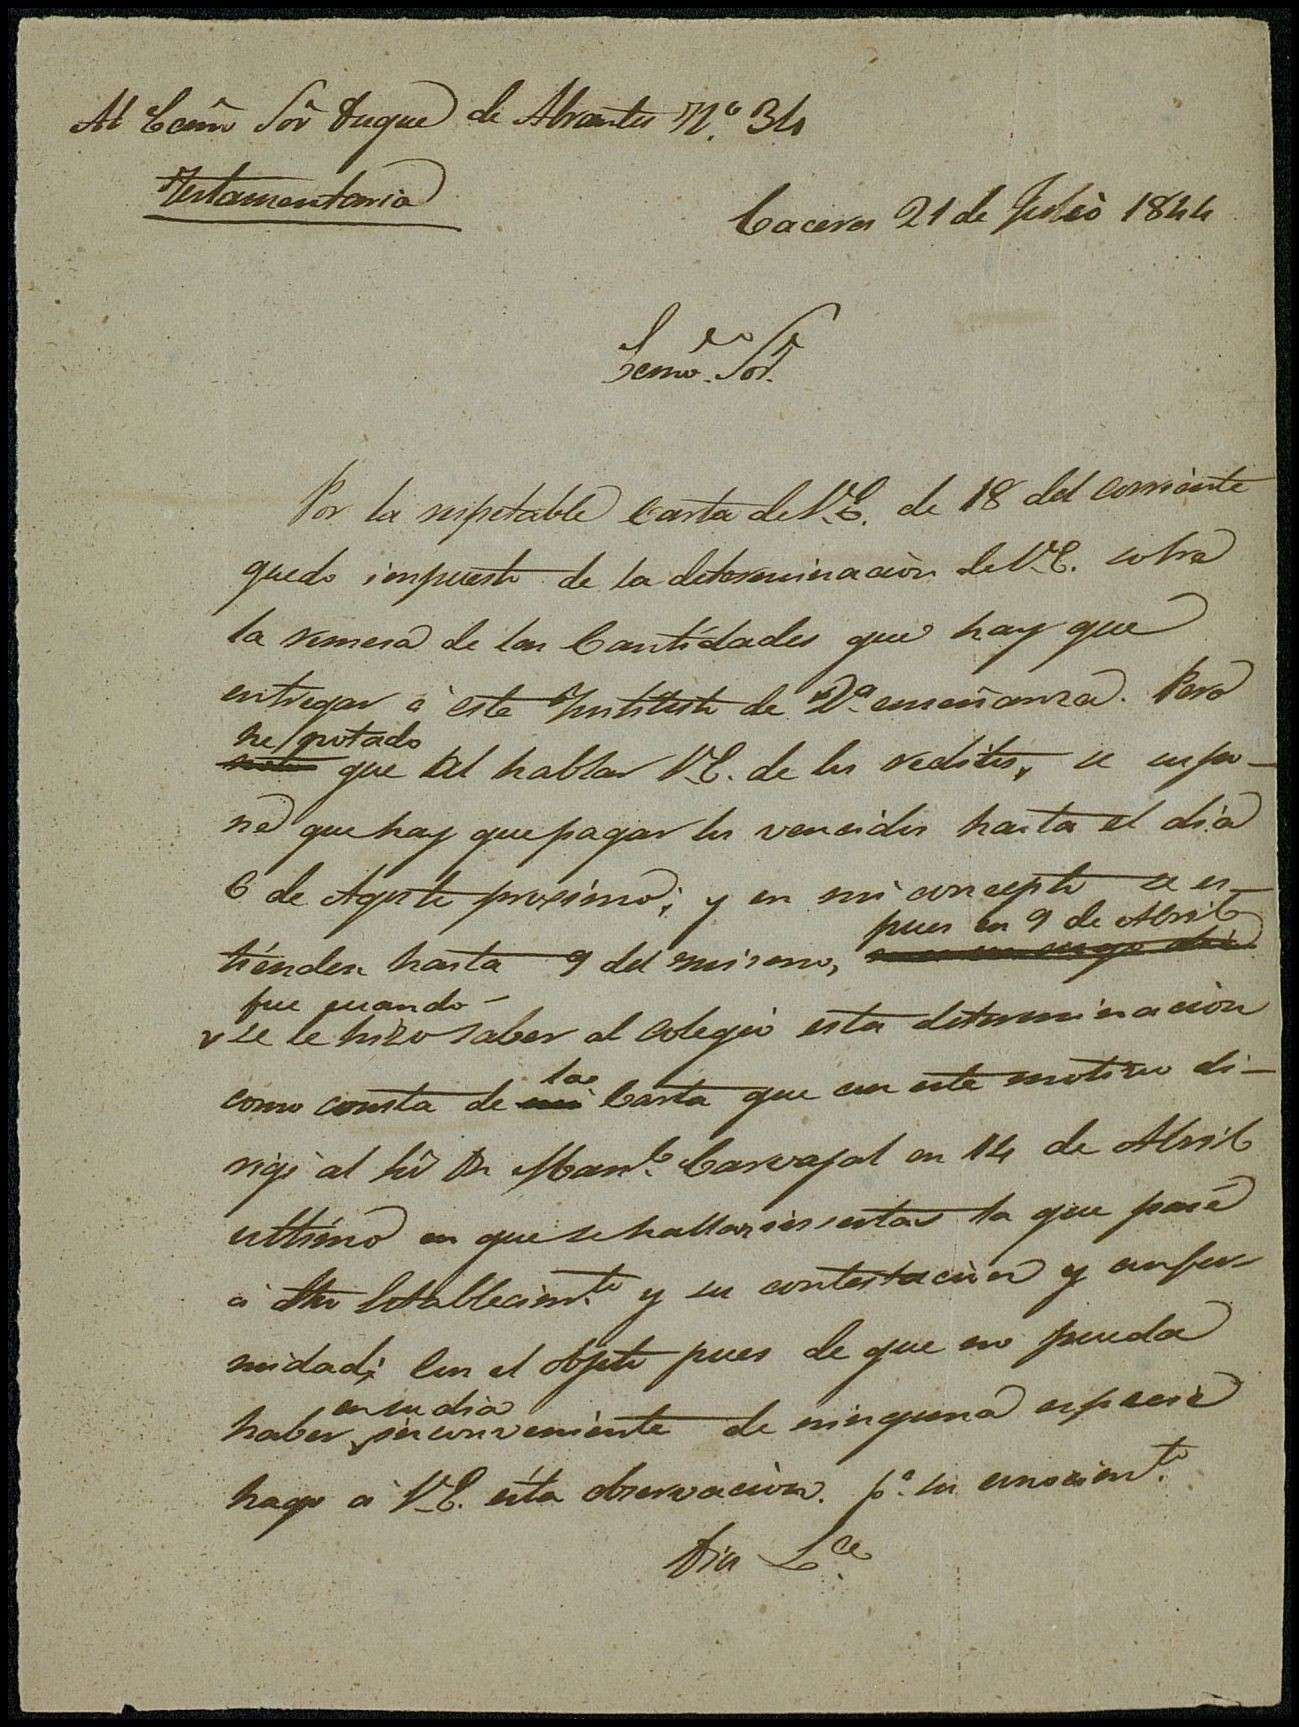 Al Ecmo Sor Duque de Abrantes N.o 34
Testamentaria
Caceres 21 de Julio 1844
Ecmo. Sor.
Por la respetable Carta de V.E. de 18 del corriente
quedo impuesto de la determinacion de V.E. sobre
la remesa de las Cantidades que hay que
entregar á este Instituto de 2.a enseñanza. Pero
he notado
que al hablar V.E. de los reditos, se supo-
ne que hay que pagar los vencidos hasta el dia
6 de Agosto proximo; y en mi concepto se es-
pues en 9 de Abril
tienden hasta 9 del mismo,
fue cuando
se le hizo saber al Colegio esta determinacion
la
como consta de mi Carta que con este motivo di-
rigi al Sor Dn Man.l Carvajal en 14 de Abril
ultimo en que se hallan insertas la que pasé
á dho Establecim.to y su contestacion y confor-
midad; Con el objeto pues de que no pueda
en su dia
haber inconveniente de ninguna especie
hago á V.E. esta observacion. p.a su conocim.to
Dios L.ce